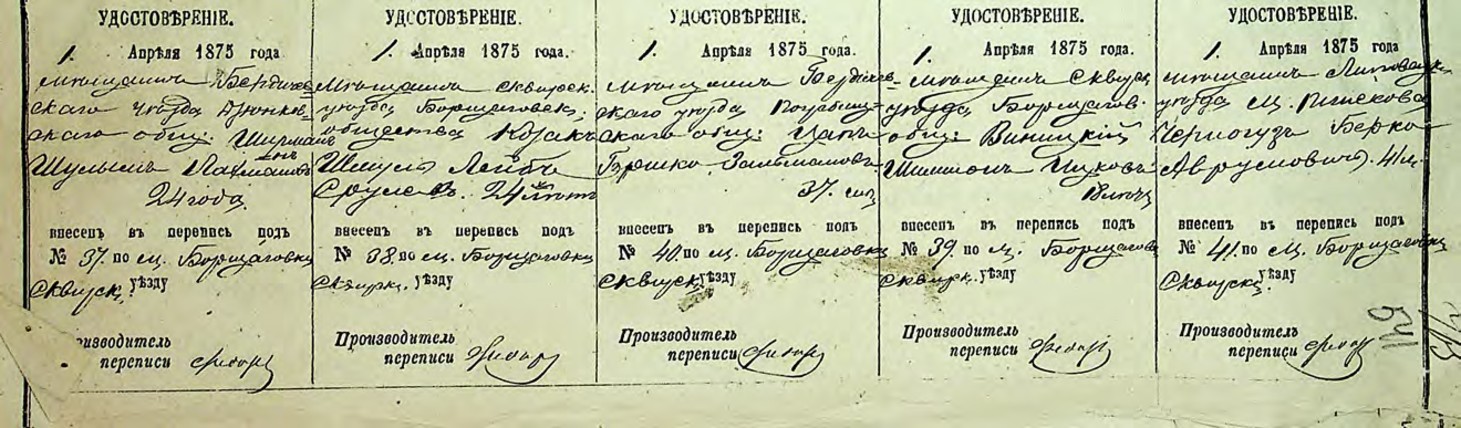 УДОСТОВѢРЕНІЕ.
1. Апрѣля 1875 года
мѣщанинъ Бердичев
скаго уѣзда Дзюнков
скаго общ: Ширманъ
Шулымъ Лахмановъ
24 года
внесенъ въ перепись подъ
№ 37. по м. Борщаговки
Сквирск. уѣзду
Производитель
переписи
УДОСТОВѢРЕНІЕ.
1. Апрѣля 1875 года.
Мѣщанинъ Сквирск.
уѣзда Борщаговск.
общества Козакъ
Шмуль Лейба
Срулев. 24 лѣтъ
внесенъ въ перепись подъ
№ 38. по м. Борщаговки
Сквирск. уѣзду
Производитель
переписи
УДОСТОВѢРЕНІЕ.
1. Апрѣля 1875 года.
мѣщанинъ Бердичев-
скаго уѣзда Погребищ-
скаго общ: Цапъ
Гершко Зальмановъ
37.
внесенъ въ перепись подъ
№ 40. по м. Борщаговки
Сквирск. уѣзду
Производитель
переписи
УДОСТОВѢРЕНІЕ.
1. Апрѣля 1875 года
мѣщанинъ Сквирск.
уѣзда Борщагов.
общ: Виницкій
Шимонъ Ицковъ
18 лѣтъ
внесенъ въ перепись подъ
№ 39. по м. Борщаговк
Сквирск. уѣзду
Производитель
переписи
УДОСТОВѢРЕНІЕ.
1. Апрѣля 1875 года
мѣщанинъ Липовецк.
уѣзда м.
Черногузъ Берко
Аврумовичъ. 41 л.
внесенъ въ перепись подъ
№ 41. по м. Борщаговки
Сквирск. уѣзду
Производитель
переписи
541